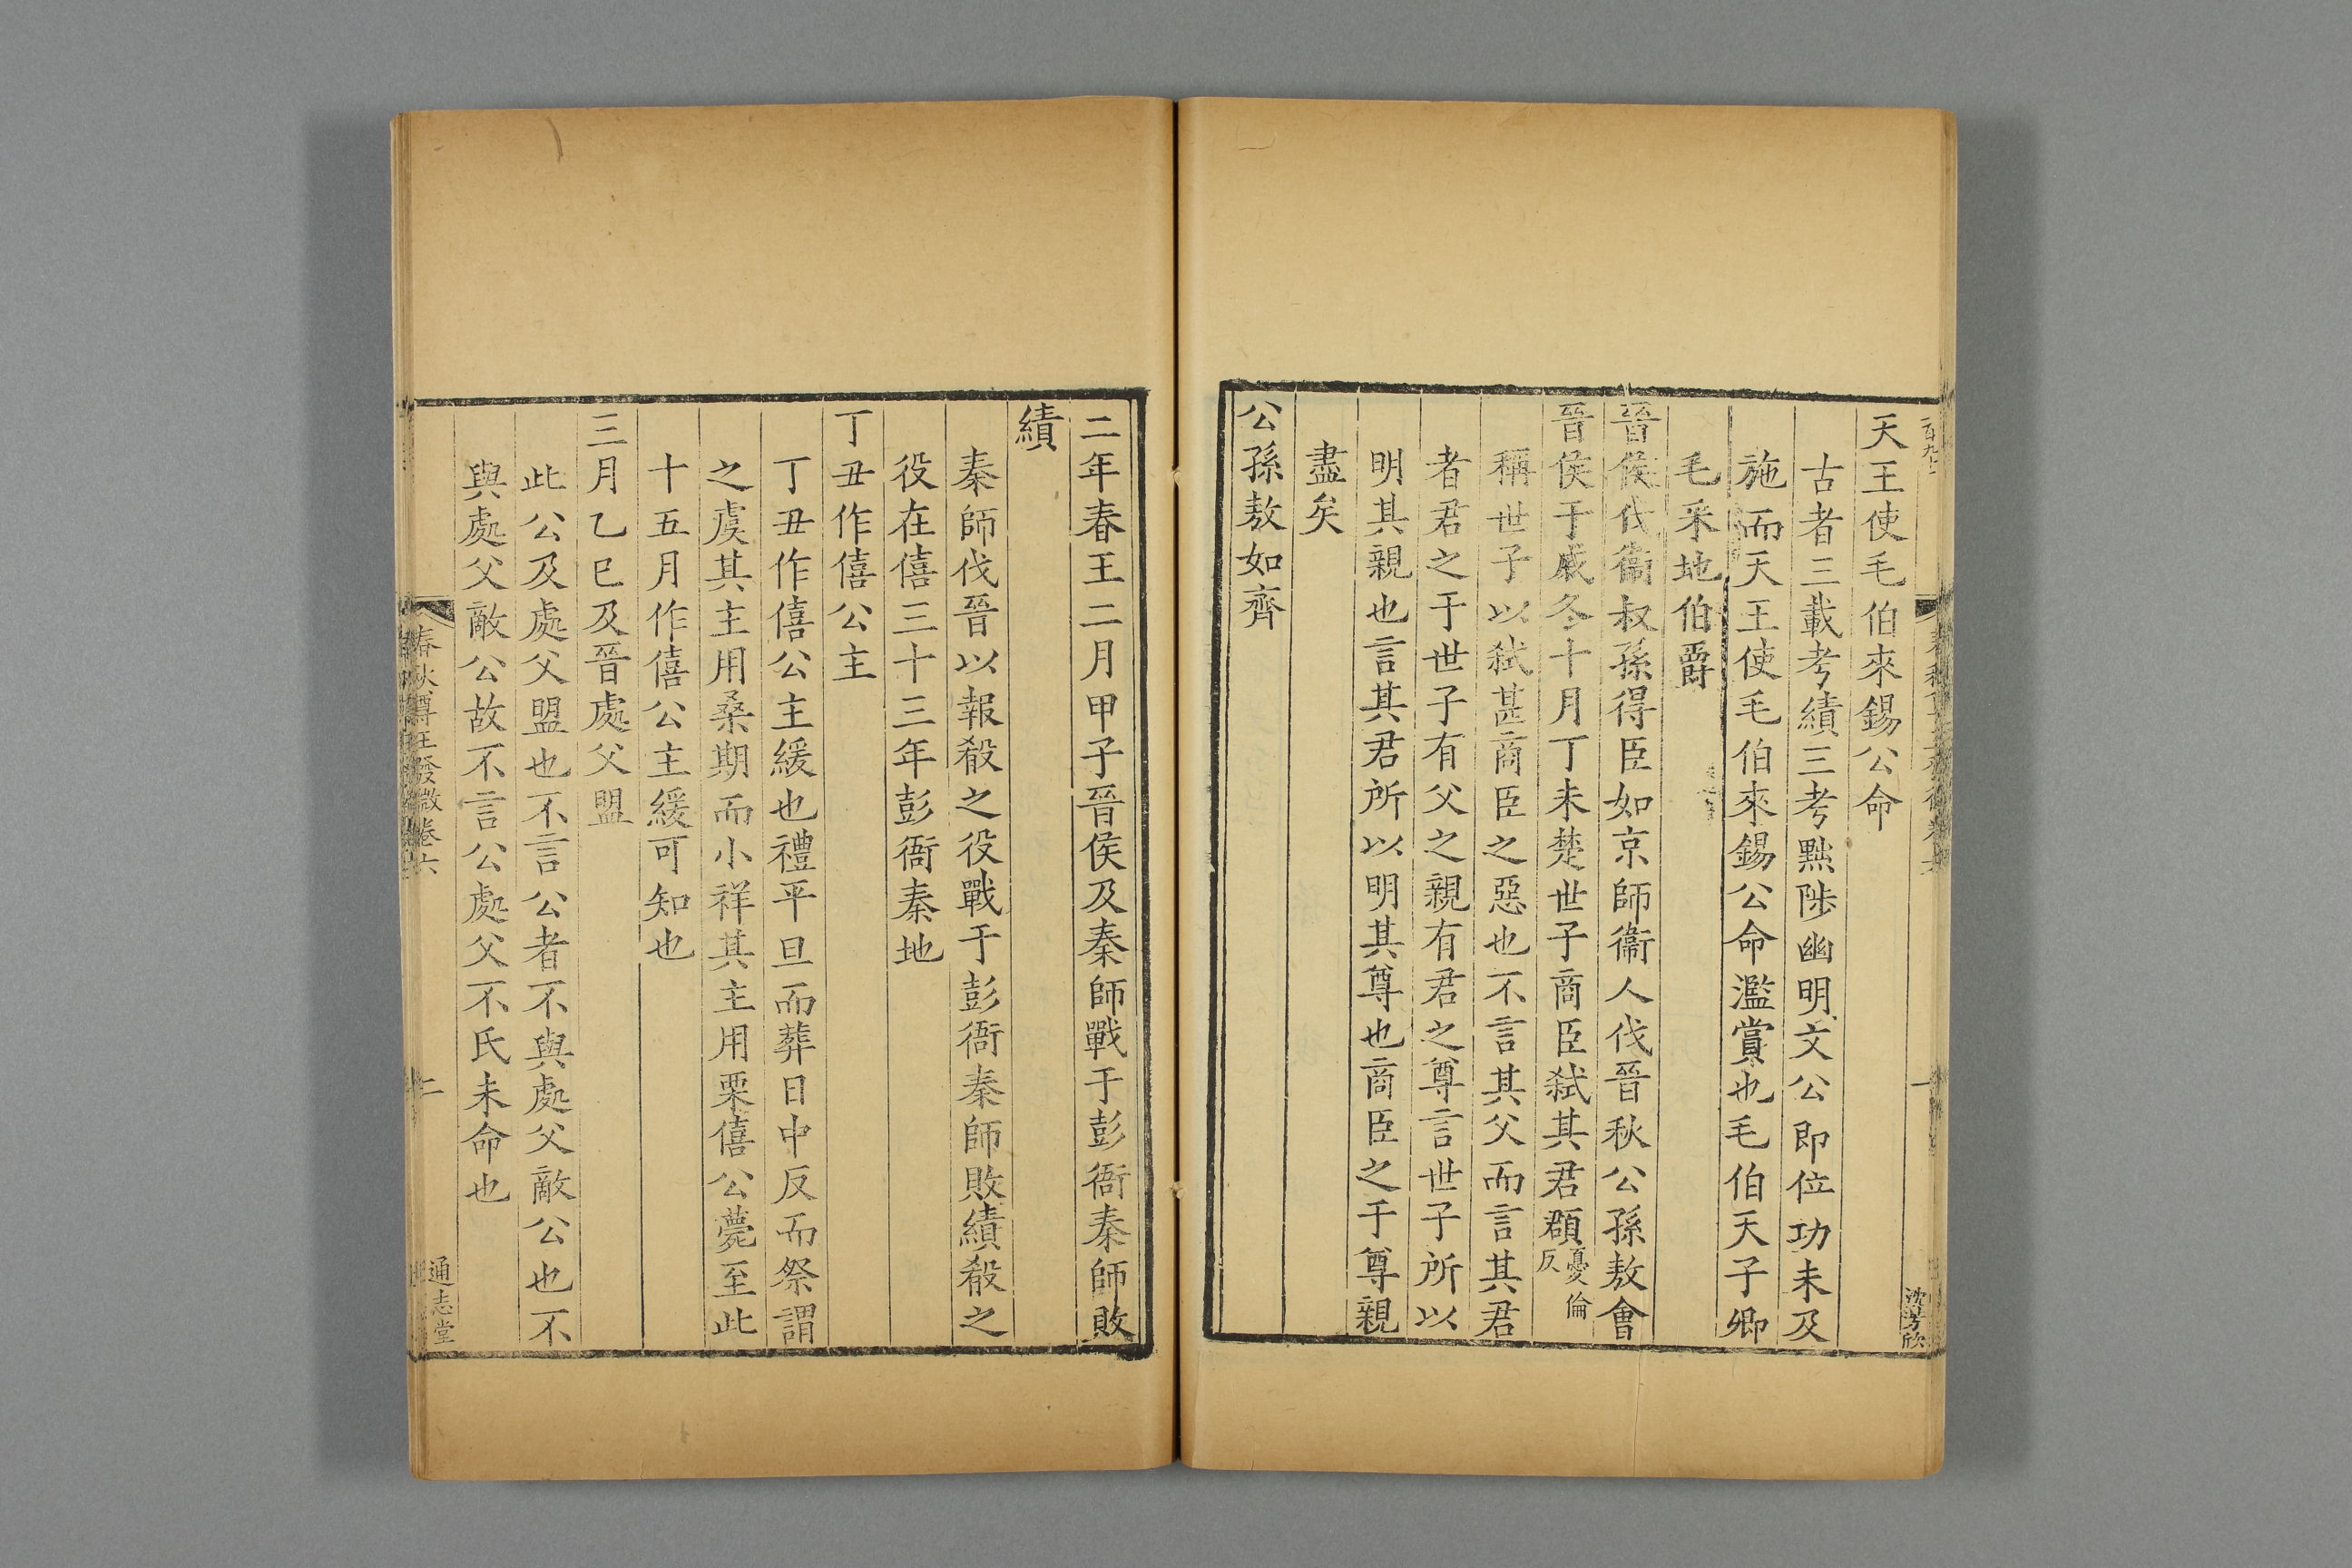 天王使毛伯來錫公命
古者三載考績三考黜陟幽明文公即位功未及
施而天王使毛伯來錫公命濫賞也毛伯天子卿
毛采地伯爵
晉侯伐衞叔孫得臣如京師衞人伐晉秋公孫敖會
晉侯于戚冬十月丁未楚世子商臣弑其君頵憂倫反
稱世子以弑甚商臣之惡也不言其父而言其君
者君之于世子有父之親有君之尊言世子所以
明其親也言其君所以明其尊也商臣之于尊親
盡矣
公孫敖如齊
沈芳欣
二年春王二月甲子晉侯及秦師戰于彭衙秦師敗
績
秦師伐晉以報殽之役戰于彭衙秦師敗績殽之
役在僖三十三年彭衙秦地
丁丑作僖公主
丁丑作僖公主緩也禮平旦而葬日中反而祭謂
之虞其主用桑期而小祥其主用栗僖公薨至此
十五月作僖公主緩可知也
三月乙巳及晉處父盟
此公及處父盟也不言公者不與處父敵公也不
與處父敵公故不言公處父不氏未命也
春秋尊王發微卷六
二
通志堂